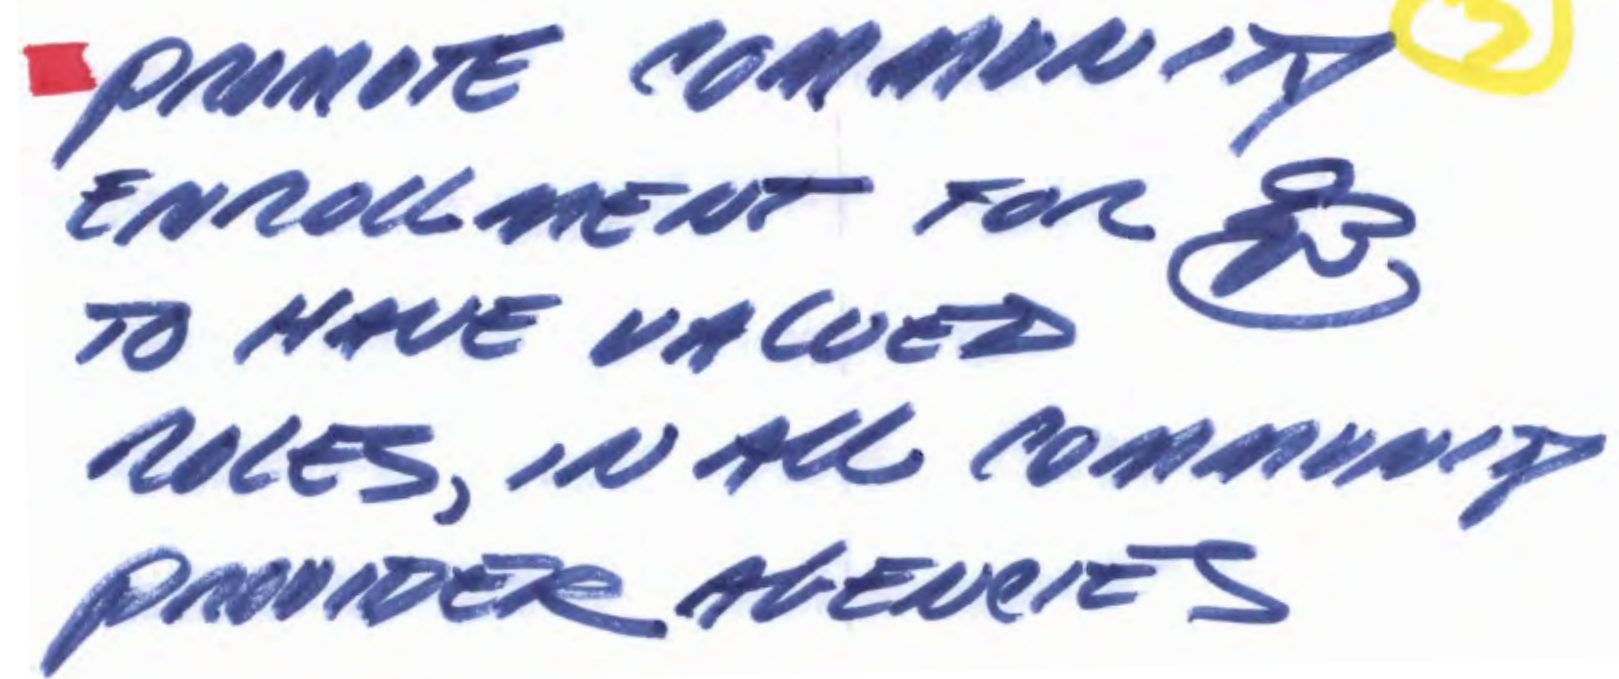 PROMOTE COMMUNITY
ENROLLMENT FOR
TO HAVE VALUED
ROLES, IN ALL COMMUNITY
PROVIDER AGENCIES